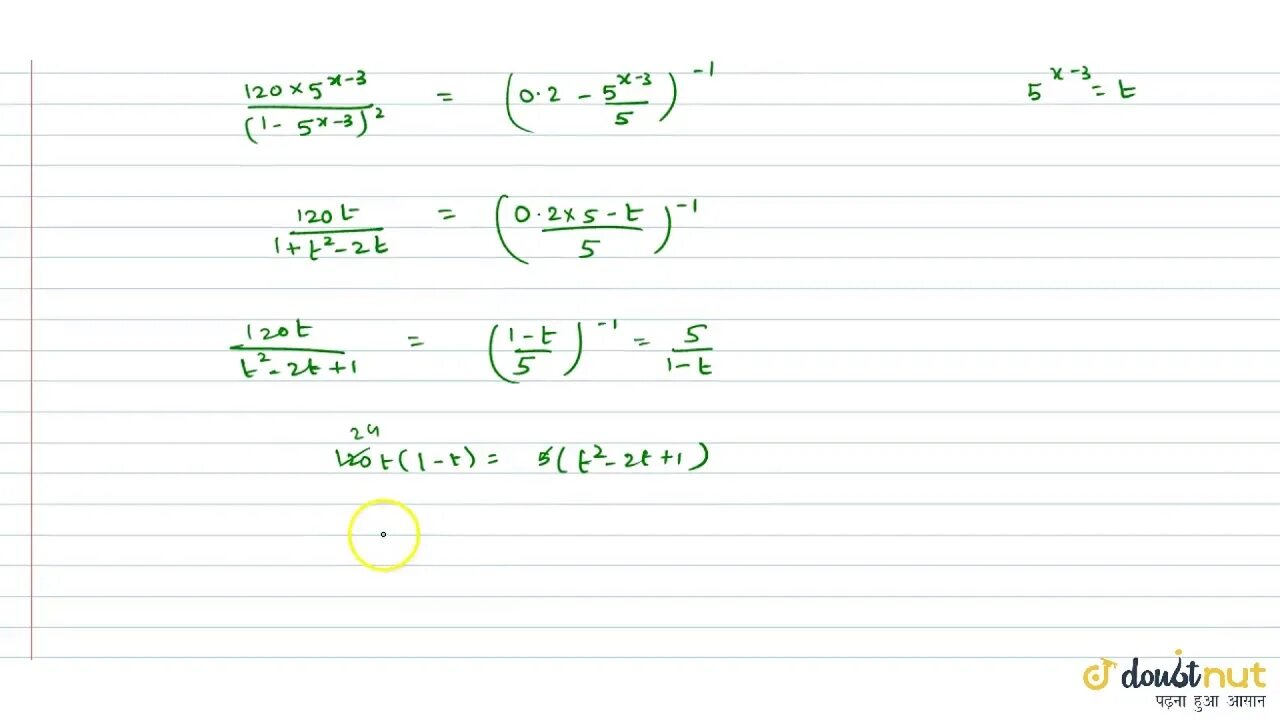 120 × 5^(x-3) / (1 - 5^(x-3))^2 = (0.2 - 5^(x-3)/5)^-1
5^(x-3) = t
120t / (1 + t^2 - 2t) = ((0.2 × 5 - t)/5)^-1
120t / (t^2 - 2t + 1) = ((1 - t)/5)^-1 = 5/(1 - t)
24
120t(1 - t) = 5(t^2 - 2t + 1)
doubtnut
पढ़ना हुआ आसान